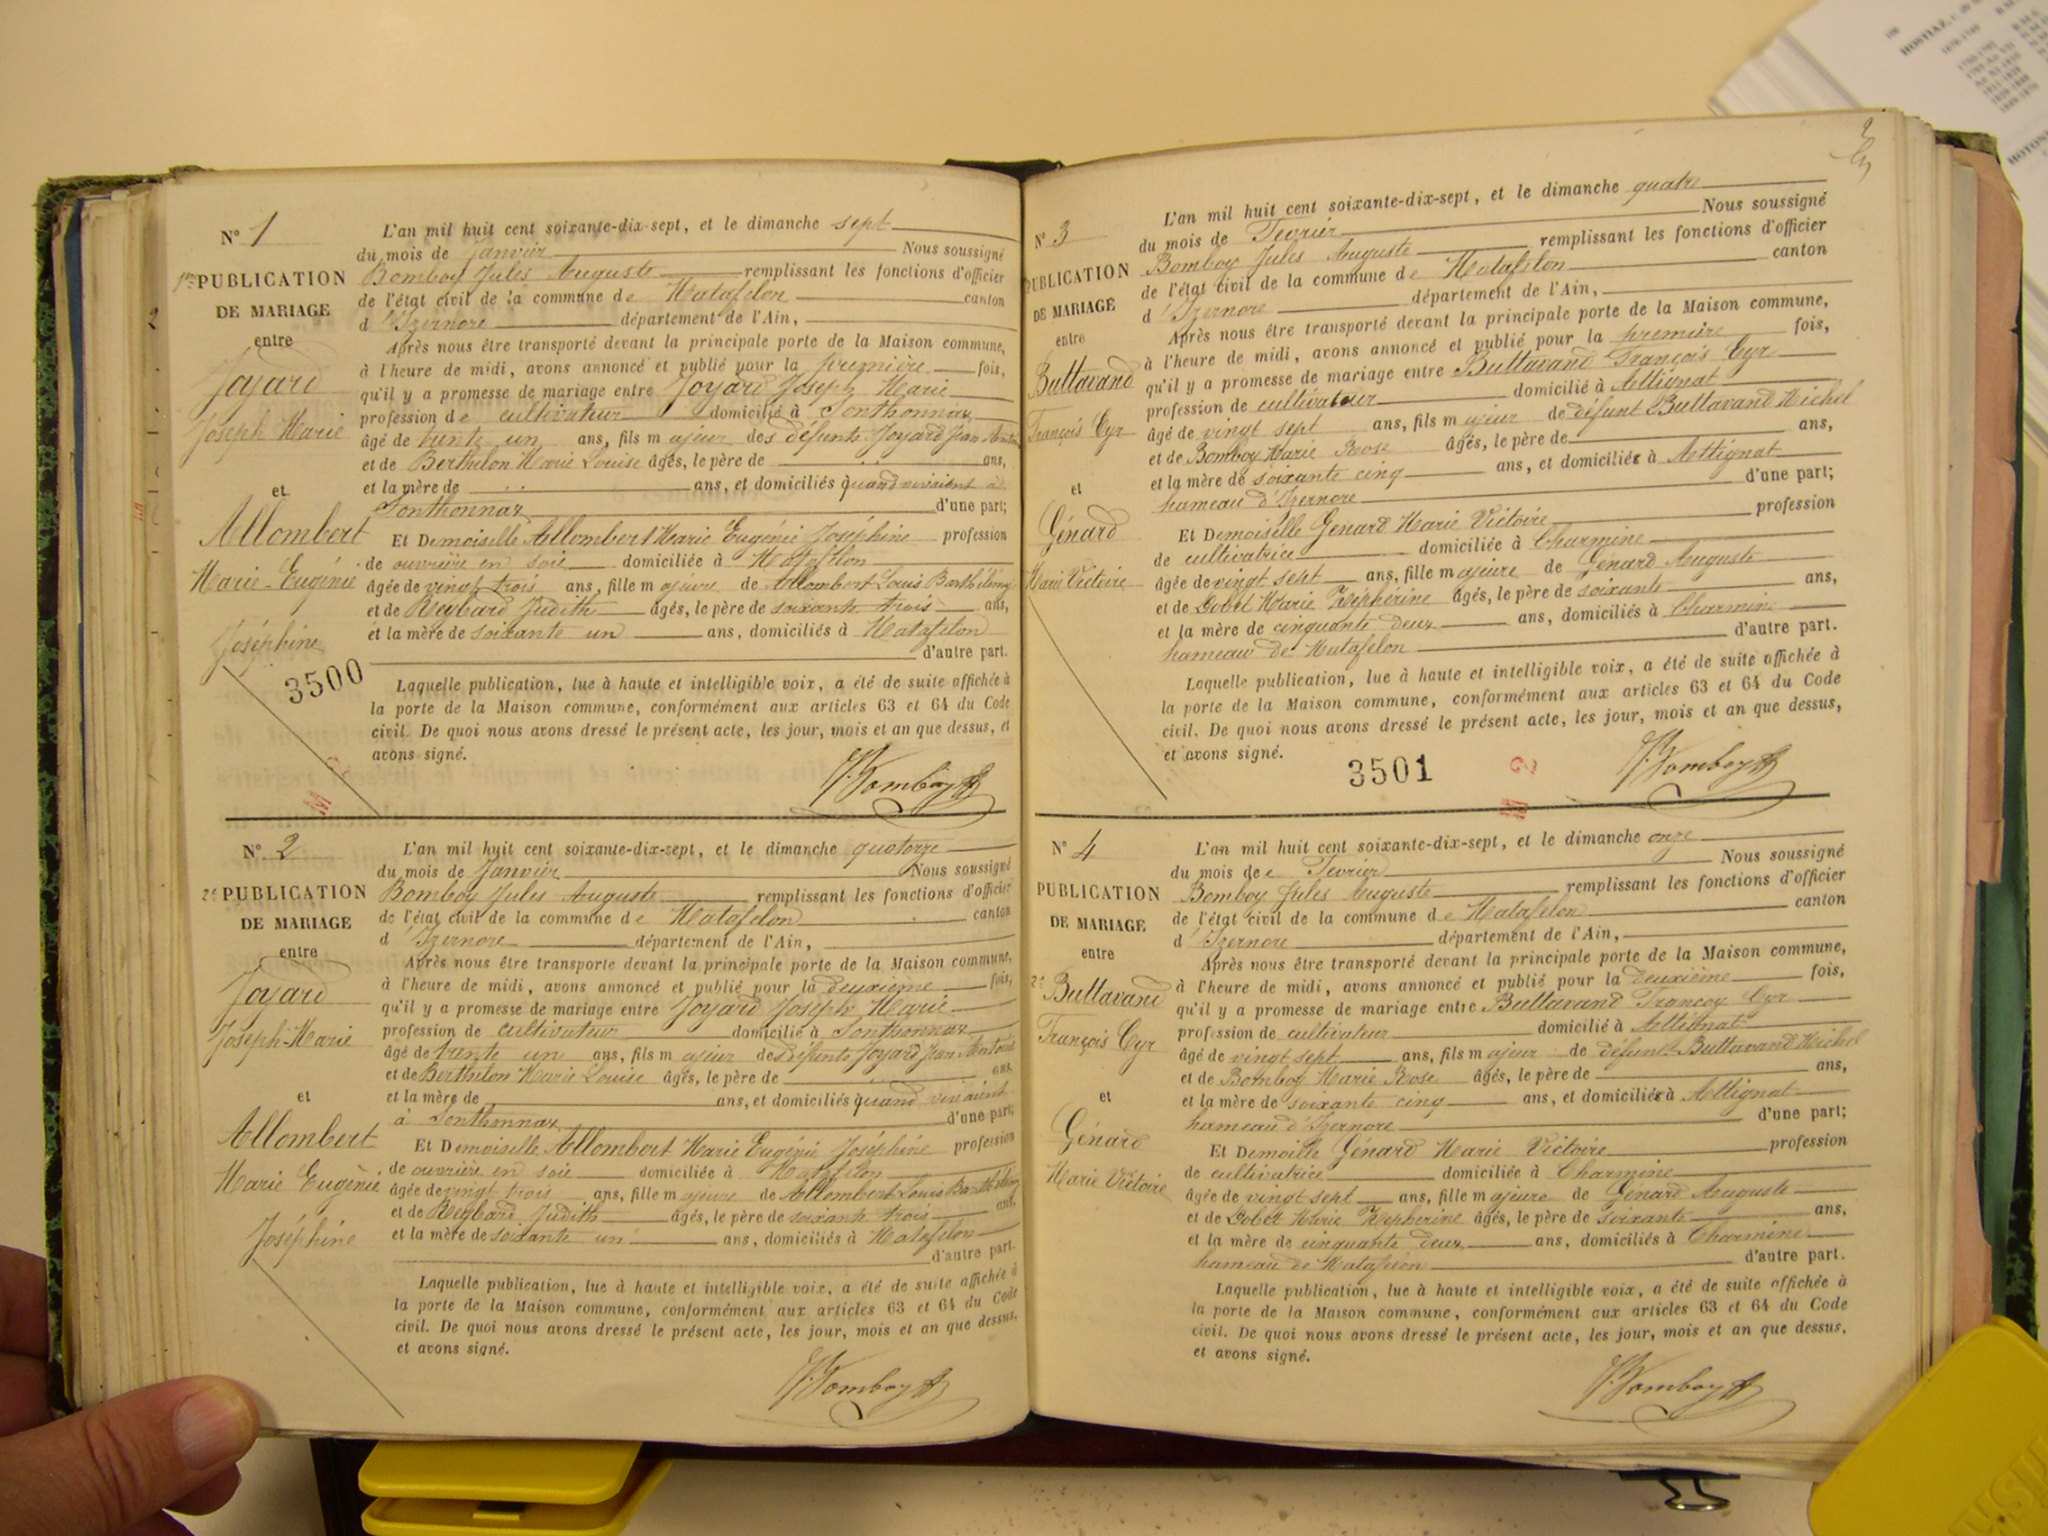 N° 1
1re PUBLICATION
DE MARIAGE
entre
Joyard
Joseph Marie
et
Allombert
Marie-Eugénie
Joséphine
3500
L'an mil huit cent soixante-dix-sept, et le dimanche sept
du mois de Janvier Nous soussigné
Bomboy Jules Auguste remplissant les fonctions d'officier
de l'état civil de la commune de Matafelon canton
d'Izernore département de l'Ain,
Après nous être transporté devant la principale porte de la Maison commune,
à l'heure de midi, avons annoncé et publié pour la première fois,
qu'il y a promesse de mariage entre Joyard Joseph Marie
profession de cultivateur domicilié à Sonthonnax
âgé de trente un ans, fils majeur des défunts Joyard Jean Antoine
et de Berthelon Marie Louise âgés, le père de ans,
et la mère de ans, et domiciliés quand vivaient à
Sonthonnax d'une part;
Et Demoiselle Allombert Marie Eugénie Joséphine profession
de ouvrière en soie domiciliée à Matafelon
âgée de vingt trois ans, fille majeure de Allombert Louis Barthélemy
et de Reybard Judith âgés, le père de soixante trois ans,
et la mère de soixante un ans, domiciliés à Matafelon
d'autre part.
Laquelle publication, lue à haute et intelligible voix, a été de suite affichée à
la porte de la Maison commune, conformément aux articles 63 et 64 du Code
civil. De quoi nous avons dressé le présent acte, les jour, mois et an que dessus, et
avons signé.
J. Bomboy
N° 2
2e PUBLICATION
DE MARIAGE
entre
Joyard
Joseph-Marie
et
Allombert
Marie Eugénie
Joséphine
L'an mil huit cent soixante-dix-sept, et le dimanche quatorze
du mois de Janvier Nous soussigné
Bomboy Jules Auguste remplissant les fonctions d'officier
de l'état civil de la commune de Matafelon canton
d'Izernore département de l'Ain,
Après nous être transporté devant la principale porte de la Maison commune,
à l'heure de midi, avons annoncé et publié pour la deuxième fois,
qu'il y a promesse de mariage entre Joyard Joseph Marie
profession de cultivateur domicilié à Sonthonnax
âgé de trente un ans, fils majeur des défunts Joyard Jean Antoine
et de Berthelon Marie Louise âgés, le père de ans
et la mère de ans, et domiciliés quand vivaient
à Sonthonnax d'une part;
Et Demoiselle Allombert Marie Eugénie Joséphine profession
de ouvrière en soie domiciliée à Matafelon
âgée de vingt trois ans, fille majeure de Allombert Louis Barthélemy
et de Reybard Judith âgés, le père de soixante trois ans,
et la mère de soixante un ans, domiciliés à Matafelon
d'autre part.
Laquelle publication, lue à haute et intelligible voix, a été de suite affichée à
la porte de la Maison commune, conformément aux articles 63 et 64 du Code
civil. De quoi nous avons dressé le présent acte, les jour, mois et an que dessus,
et avons signé.
J. Bomboy
2
N° 3
PUBLICATION
DE MARIAGE
entre
Buttavand
François Cyr
et
Génard
Marie Victoire
L'an mil huit cent soixante-dix-sept, et le dimanche quatre
du mois de Fevrier Nous soussigné
Bomboy Jules Auguste remplissant les fonctions d'officier
de l'état civil de la commune de Matafelon canton
d'Izernore département de l'Ain,
Après nous être transporté devant la principale porte de la Maison commune,
à l'heure de midi, avons annoncé et publié pour la première fois,
qu'il y a promesse de mariage entre Buttavand François Cyr
profession de cultivateur domicilié à Attignat
âgé de vingt sept ans, fils majeur de défunt Buttavand Michel
et de Bomboy Marie Rose âgés, le père de ans,
et la mère de soixante cinq ans, et domiciliés à Attignat
hameau d'Izernore d'une part;
Et Demoiselle Génard Marie Victoire profession
de cultivatrice domiciliée à Charmine
âgée de vingt sept ans, fille majeure de Génard Auguste
et de Gobet Marie Zéphérine âgés, le père de soixante ans,
et la mère de cinquante deux ans, domiciliés à Charmine
hameau de Matafelon d'autre part.
Laquelle publication, lue à haute et intelligible voix, a été de suite affichée à
la porte de la Maison commune, conformément aux articles 63 et 64 du Code
civil. De quoi nous avons dressé le présent acte, les jour, mois et an que dessus,
et avons signé.
3501
J. Bomboy
N° 4
PUBLICATION
DE MARIAGE
entre
2e Buttavand
François Cyr
et
Génard
Marie Victoire
L'an mil huit cent soixante-dix-sept, et le dimanche onze
du mois de Fevrier Nous soussigné
Bomboy Jules Auguste remplissant les fonctions d'officier
de l'état civil de la commune de Matafelon canton
d'Izernore département de l'Ain,
Après nous être transporté devant la principale porte de la Maison commune,
à l'heure de midi, avons annoncé et publié pour la deuxième fois,
qu'il y a promesse de mariage entre Buttavand Françoy Cyr
profession de cultivateur domicilié à Attignat
âgé de vingt sept ans, fils majeur de défunt Buttavand Michel
et de Bomboy Marie Rose âgés, le père de ans,
et la mère de soixante cinq ans, et domiciliés à Attignat
hameau d'Izernore d'une part;
Et Demoille Génard Marie Victoire profession
de cultivatrice domiciliée à Charmine
âgée de vingt sept ans, fille majeure de Génard Auguste
et de Gobet Marie Zépherine âgés, le père de soixante ans,
et la mère de cinquante deux ans, domiciliés à Charmine
hameau de Matafelon d'autre part.
Laquelle publication, lue à haute et intelligible voix, a été de suite affichée à
la porte de la Maison commune, conformément aux articles 63 et 64 du Code
civil. De quoi nous avons dressé le présent acte, les jour, mois et an que dessus,
et avons signé.
J. Bomboy